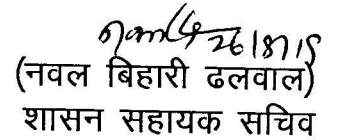 26/8/15
(नवल बिहारी ढलवाल)
शासन सहायक सचिव